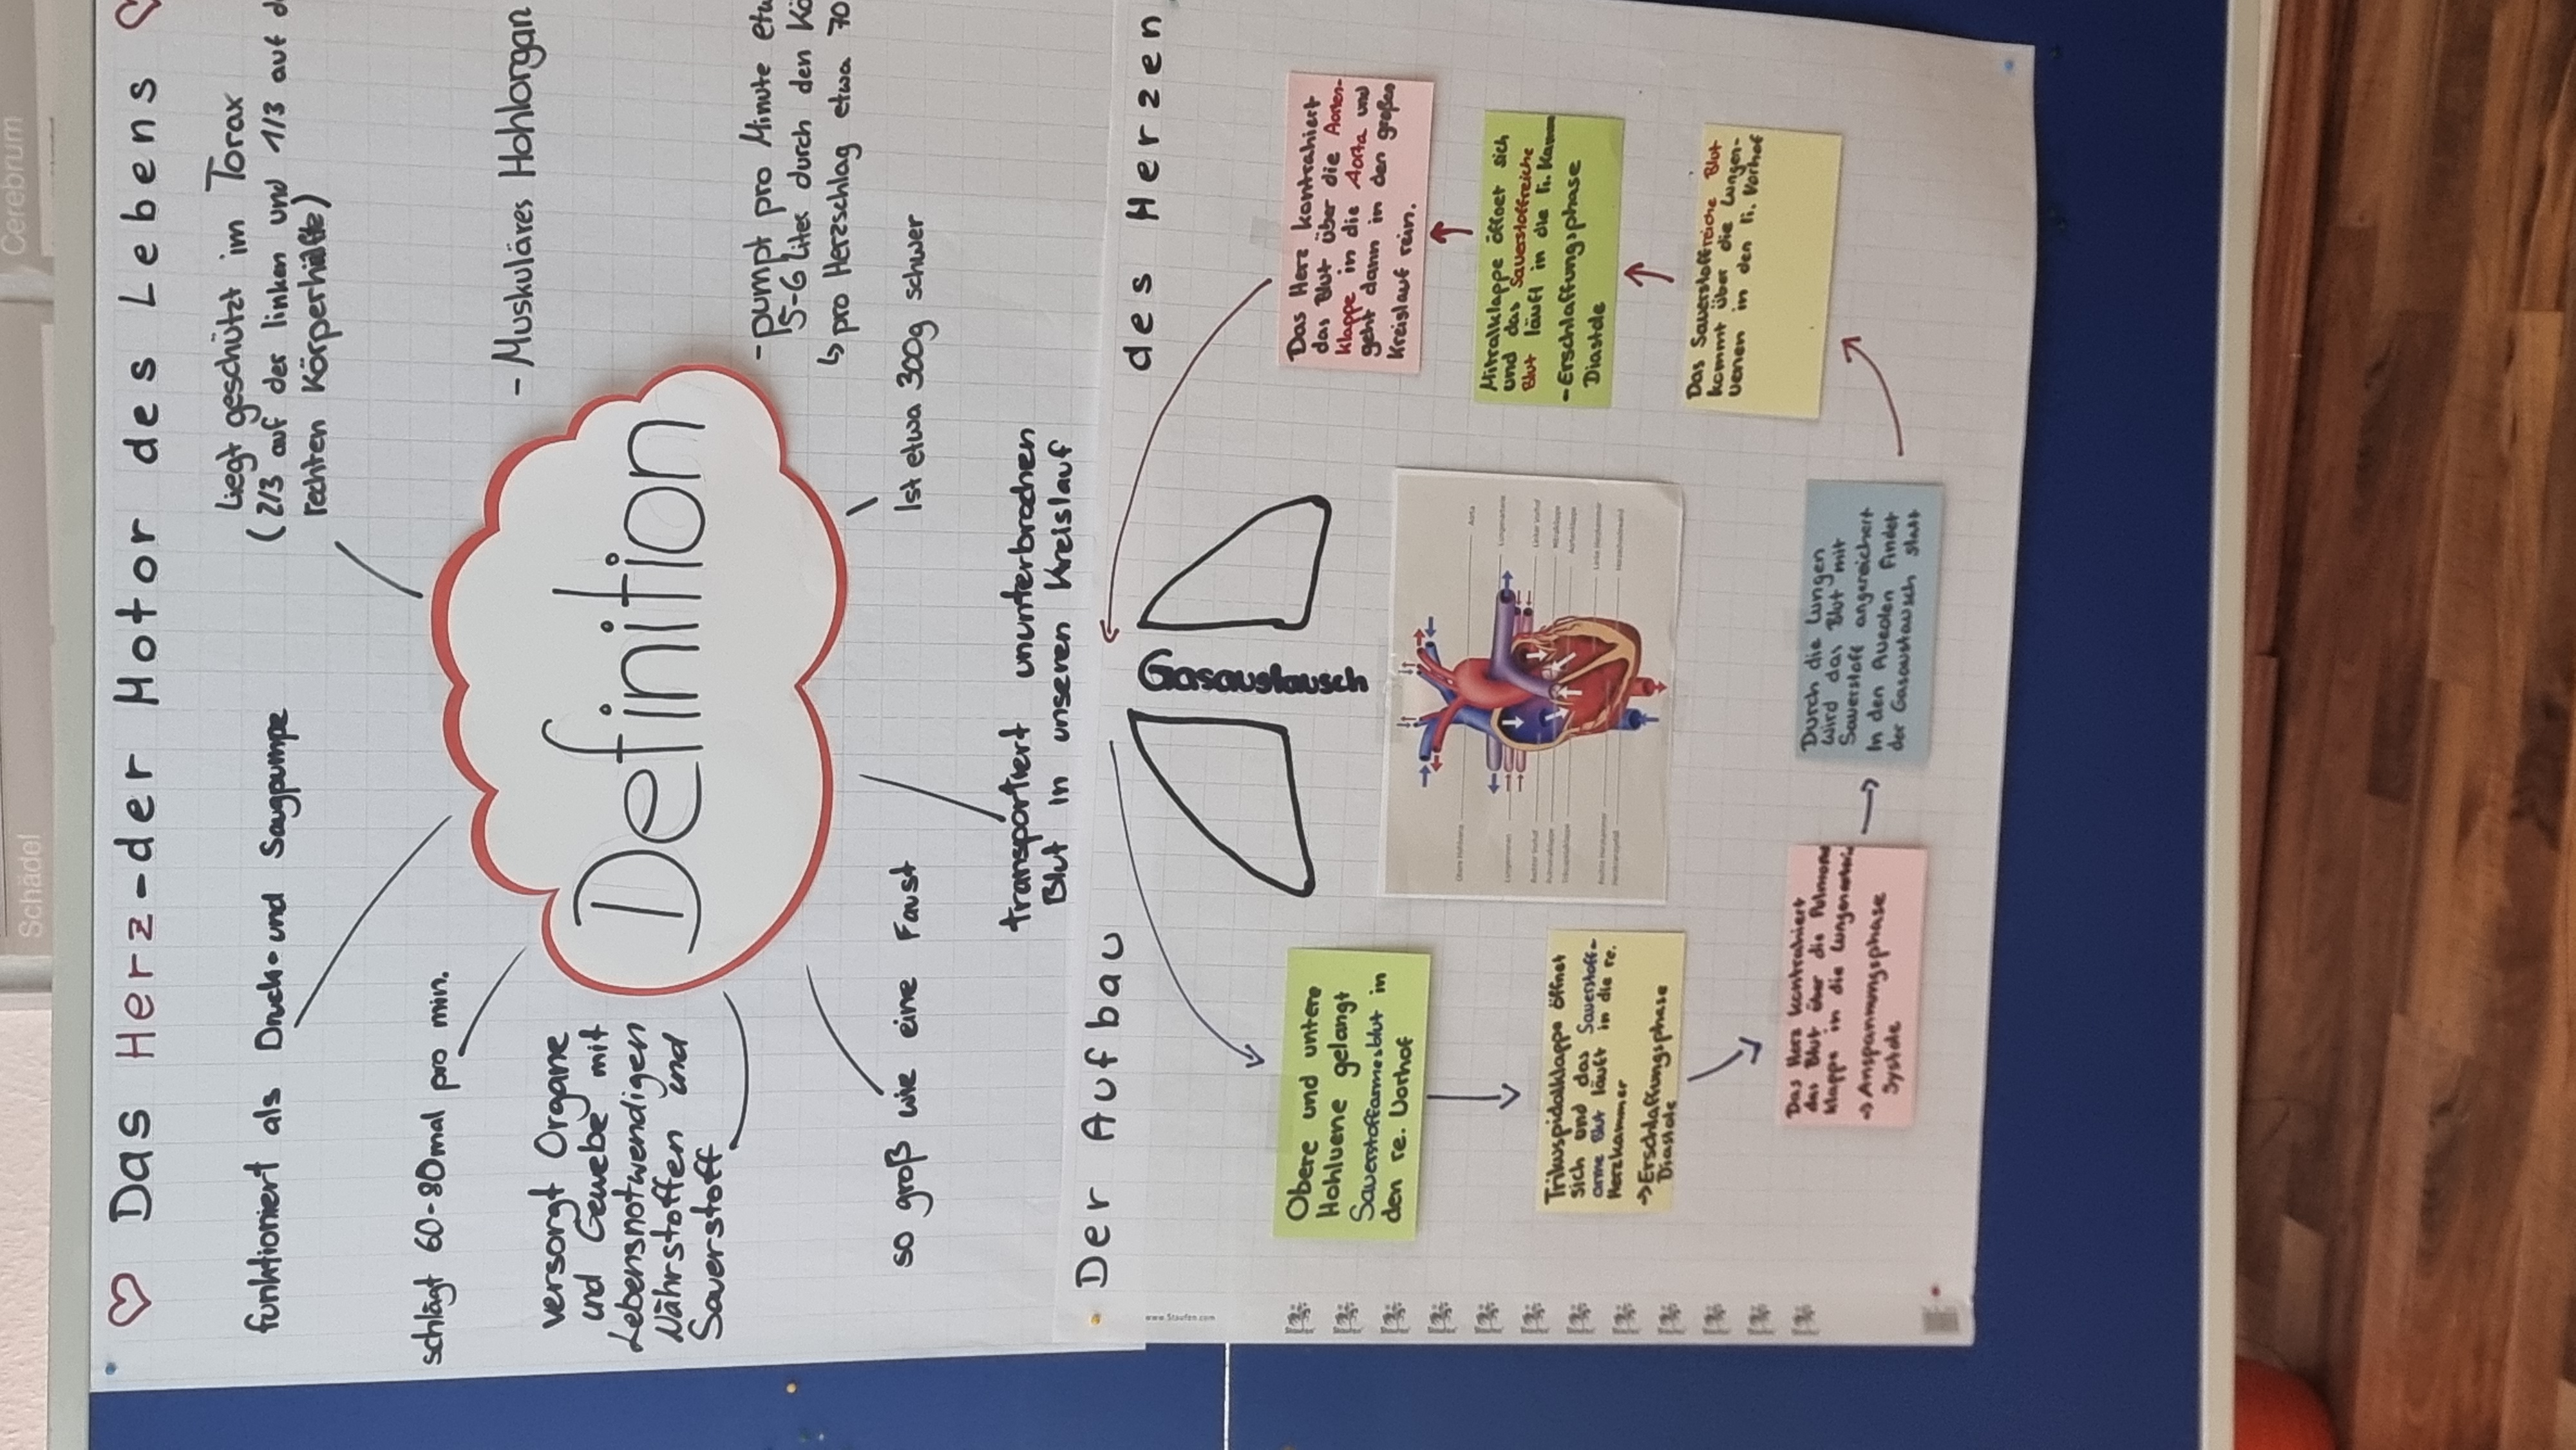 Schädel
Cerebrum
♡ Das Herz - der Motor des Lebens ♡
funktioniert als Druck- und Saugpumpe
Liegt geschützt im Torax
(2/3 auf der linken und 1/3 auf
rechten Körperhälfte)
schlägt 60-80mal pro min.
- Muskuläres Hohlorgan
versorgt Organe
und Gewebe mit
Lebensnotwendigen
Nährstoffen und
Sauerstoff
Definition
- pumpt pro Minute
5-6 Liter durch den
↳ pro Herzschlag etwa 70
Ist etwa 300g schwer
so groß wie eine Faust
transportiert ununterbrochen
Blut in unseren Kreislauf
Der Aufbau des Herzen
Gasaustausch
Obere und untere
Hohlvene gelangt
Sauerstoffarmesblut in
den re. Vorhof
Trikuspidalklappe öffnet
sich und das Sauerstoff-
arme Blut läuft in die re.
Herzkammer
→ Erschlaffungsphase
Diastole
Das Herz kontrahiert
das Blut über die
klappe in die
→ Anspannungsphase
Systole
Durch die Lungen
wird das Blut mit
Sauerstoff angereichert
In den findet
der Gasaustausch statt
Das Sauerstoffreiche Blut
kommt über die Lungen-
venen in den li. Vorhof
Mitralklappe öffnet sich
und das Sauerstoffreiche
Blut läuft in die li.
- Erschlaffungsphase
Diastole
Das Herz kontrahiert
das Blut über die Aorten-
klappe in die Aorta und
geht dann in den großes
Kreislauf rein.
Aorta
www.Staufen.com